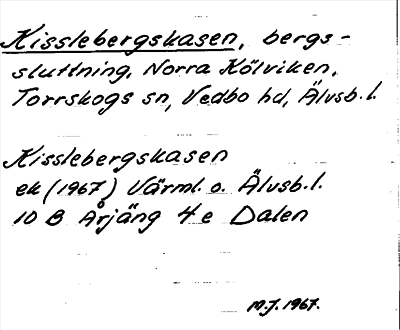 Kisslebergskasen, bergs-
sluttning, Norra Kölviken,
Torrskogs sn, Vedbo hd, Älvsb. l.
Kisslebergskasen
ek (1967) Värml. o. Älvsb. l.
10 B Årjäng 4 e Dalen
M.J. 1967.